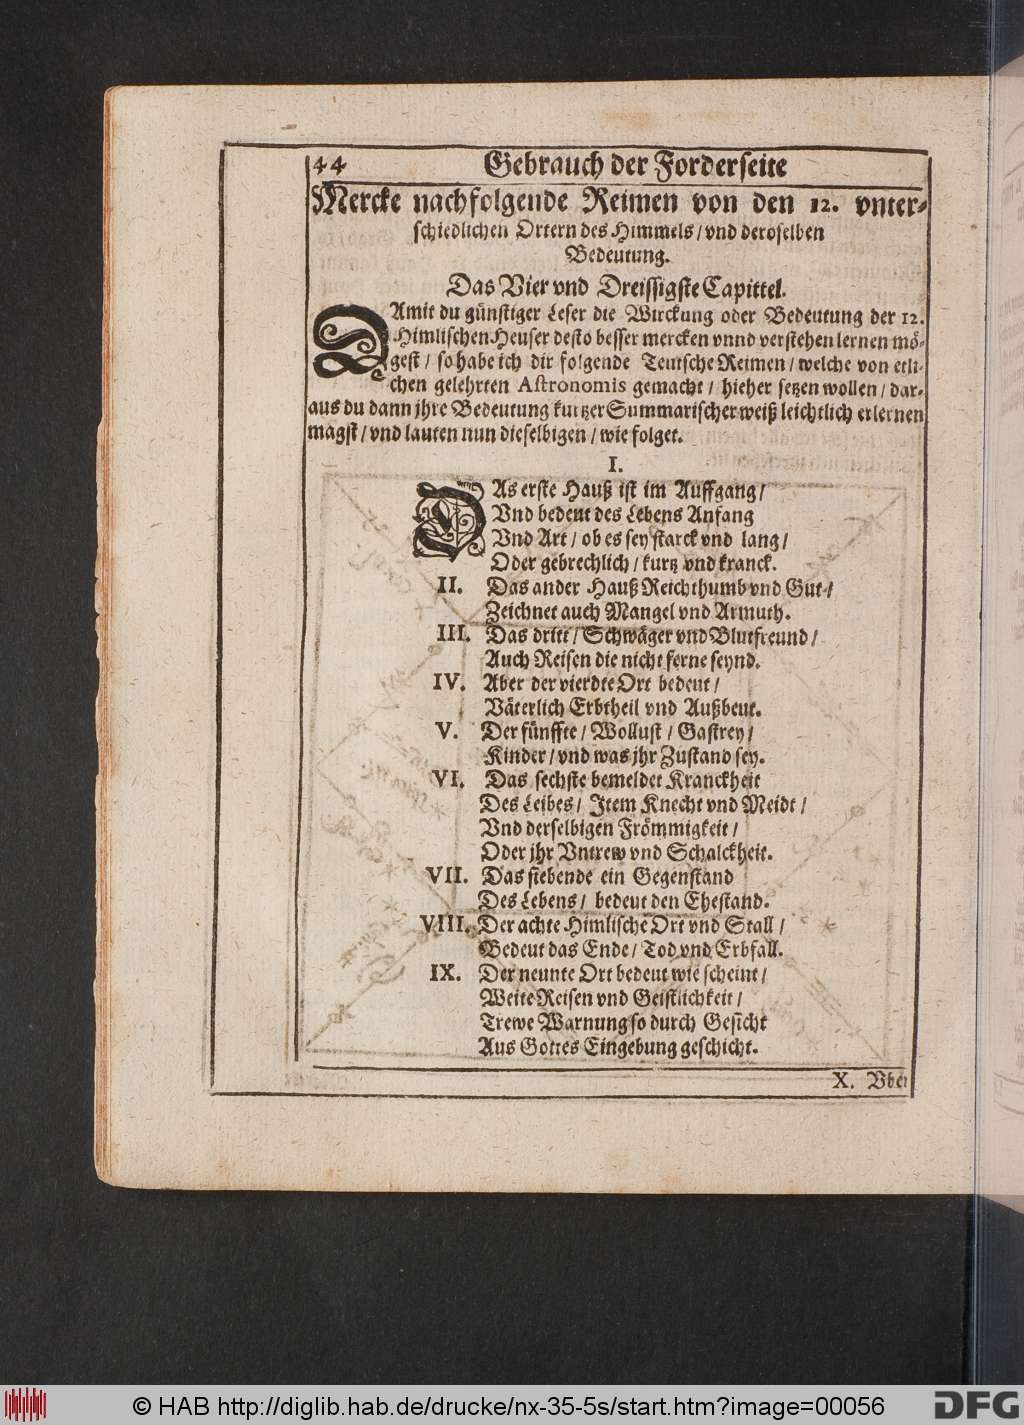 44 Gebrauch der Forderseite
Mercke nachfolgende Reimen von den 12. vnter-
schiedlichen Ortern des Himmels / vnd deroselben
Bedeutung.
Das Vier vnd Dreissigste Capittel.
DAmit du günstiger Leser die Wirckung oder Bedeutung der 12.
Himlischen Heuser desto besser mercken vnnd verstehen lernen mö-
gest / so habe ich dir folgende Teutsche Reimen / welche von etli-
chen gelehrten Astronomis gemacht / hieher setzen wollen / dar-
aus du dann jhre Bedeutung kurtzer Summarischer weiß leichtlich erlernen
magst / vnd lauten nun dieselbigen / wie folget.
I.
DAs erste Hauß ist im Auffgang /
Vnd bedeut des Lebens Anfang
Vnd Art / ob es sey starck vnd lang /
Oder gebrechlich / kurtz vnd kranck.
II. Das ander Hauß Reichthumb vnd Gut /
Zeichnet auch Mangel vnd Armuth.
III. Das dritt / Schwäger vnd Blutfreund /
Auch Reisen die nicht ferne seynd.
IV. Aber der vierdte Ort bedeut /
Väterlich Erbtheil vnd Außbeut.
V. Der fünffte / Wollust / Gastrey /
Kinder / vnd was jhr Zustand sey.
VI. Das sechste bemeldet Kranckheit
Des Leibes / Item Knecht vnd Meidt /
Vnd derselbigen Frömmigkeit /
Oder jhr Vntrew vnd Schalckheit.
VII. Das siebende ein Gegenstand
Des Lebens / bedeut den Ehestand.
VIII. Der achte Himlische Ort vnd Stall /
Bedeut das Ende / Tod vnd Erbfall.
IX. Der neunte Ort bedeut wie scheint /
Weite Reisen vnd Geistlichkeit /
Trewe Warnung so durch Gesicht
Aus Gottes Eingebung geschicht.
X. Vber
© HAB http://diglib.hab.de/drucke/nx-35-5s/start.htm?image=00056
DFG